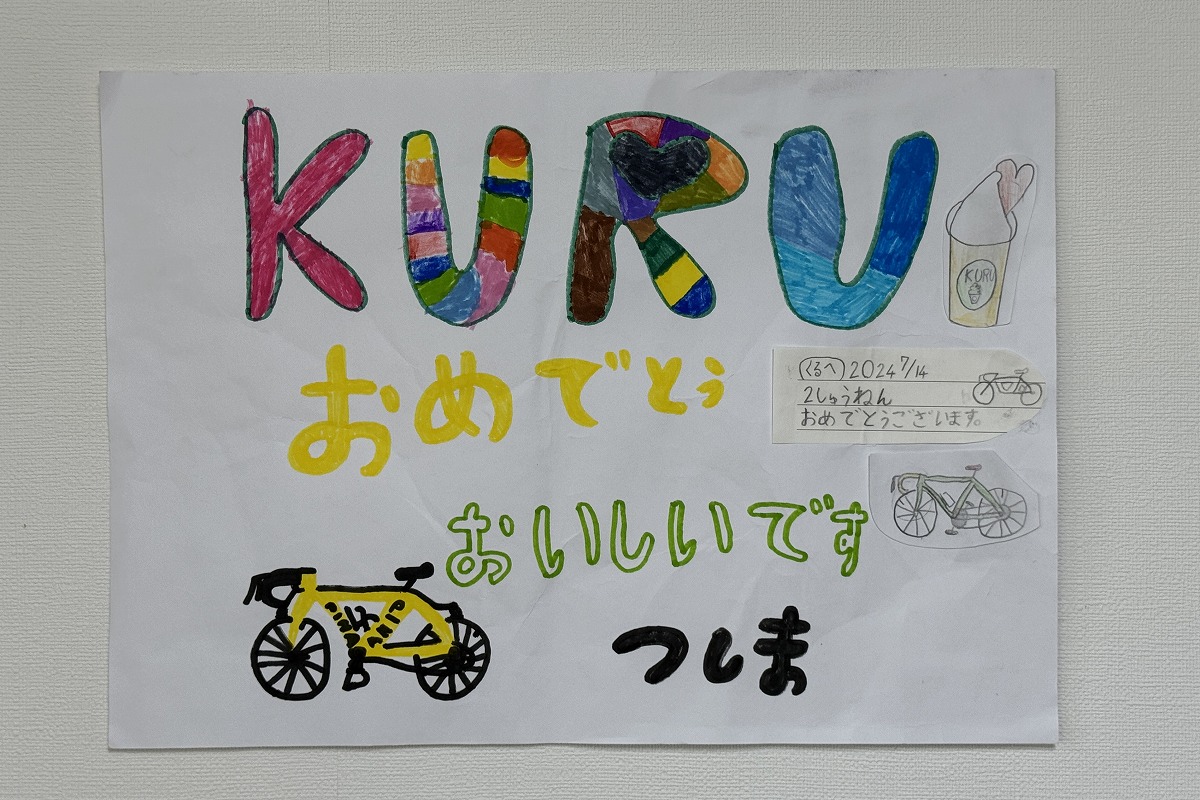 KURU
KURU
おめでとう
くるへ 2024 7/14
2しゅうねん
おめでとうございます。
おいしいです
つしま